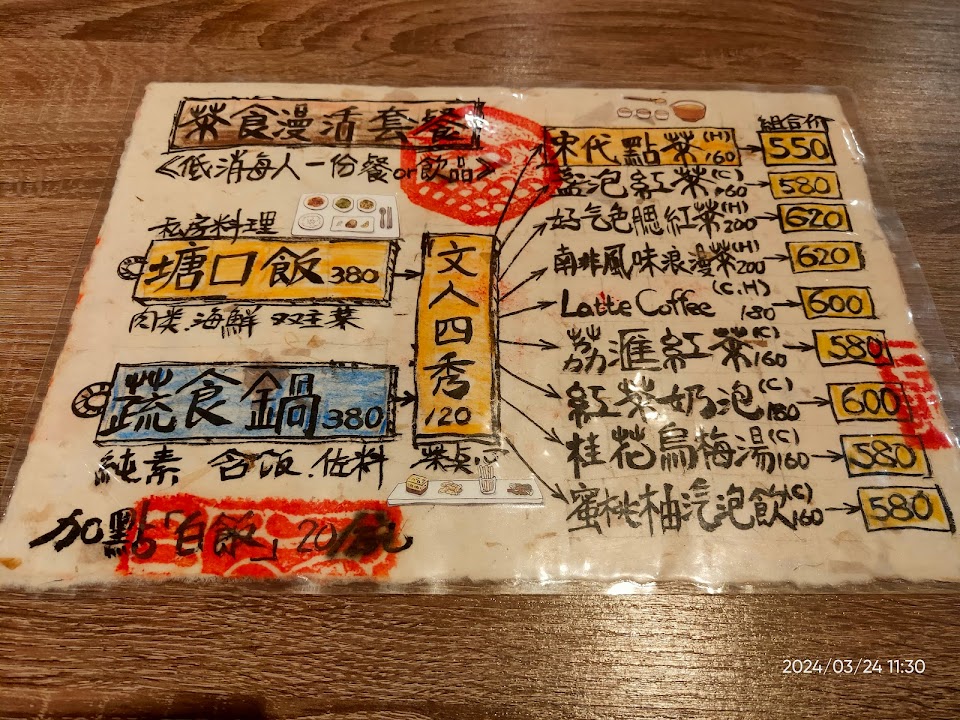 茶食漫活套餐
《低消每人一份餐or飲品》
私房料理
塘口飯 380
肉类.海鮮 双主菜
蔬食鍋 380
純素 含飯.佐料
加點「白飯」20
文人四秀 120
茶點心
組合价
宋代點茶(H) 160 550
盖泡紅茶(C) 160 580
好气色腮紅茶(H) 200 620
南非風味浪漫茶(H) 200 620
Latte Coffee (C.H) 180 600
荔滙紅茶(C) 160 580
紅茶奶泡(C) 180 600
桂花烏梅湯(C) 160 580
蜜桃柚汽泡飲(C) 160 580
2024/03/24 11:30